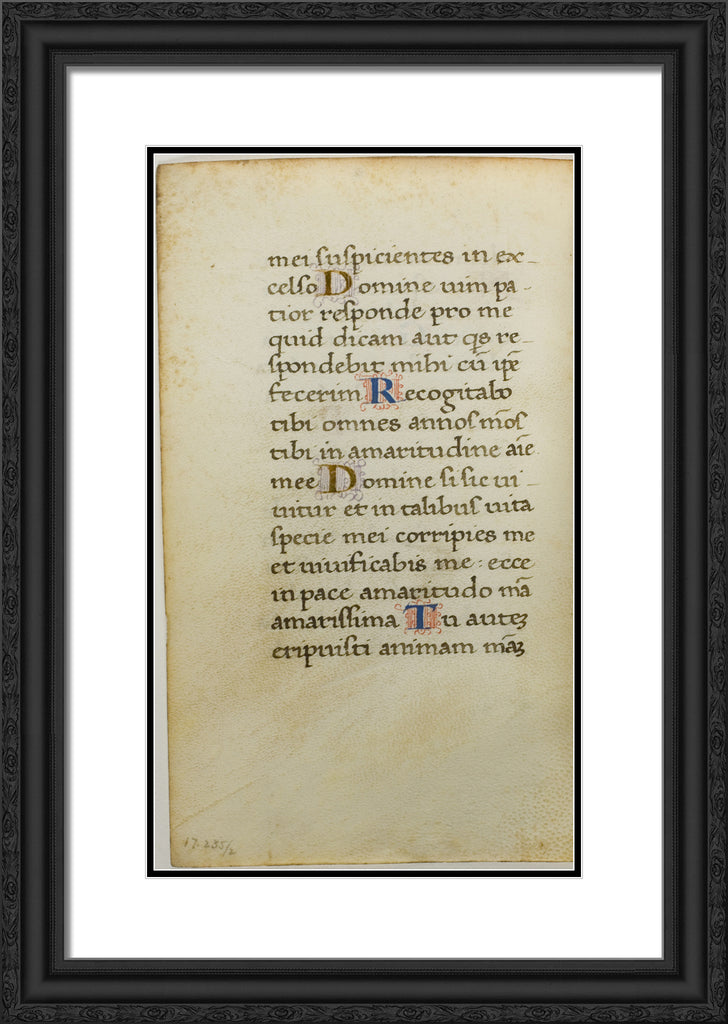 mei suspicientes in ex-
celso Domine uim pa-
tior responde pro me
quid dicam aut q̄s re-
spondebit mihi cū ip̄e
fecerim Recogitabo
tibi omnes annos mōs
tibi in amaritudine aīe
mee Domine si sic ui-
uitur et in talibus uita
specie mei corripies me
et uiuificabis me : ecce
in pace amaritudo mā
amarissima Tu autez
eripuisti animam māz
17.235/2